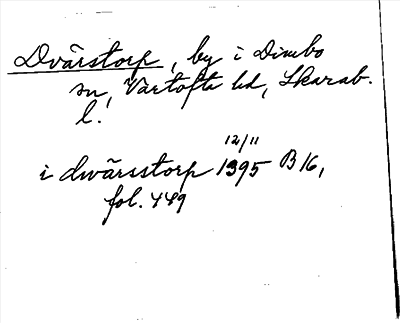 Dvärstorp, by i Dimbo
sn, Vartofta hd, Skarab.
l.
12/11
i dwærsstorp 1395 B 16,
fol. 449